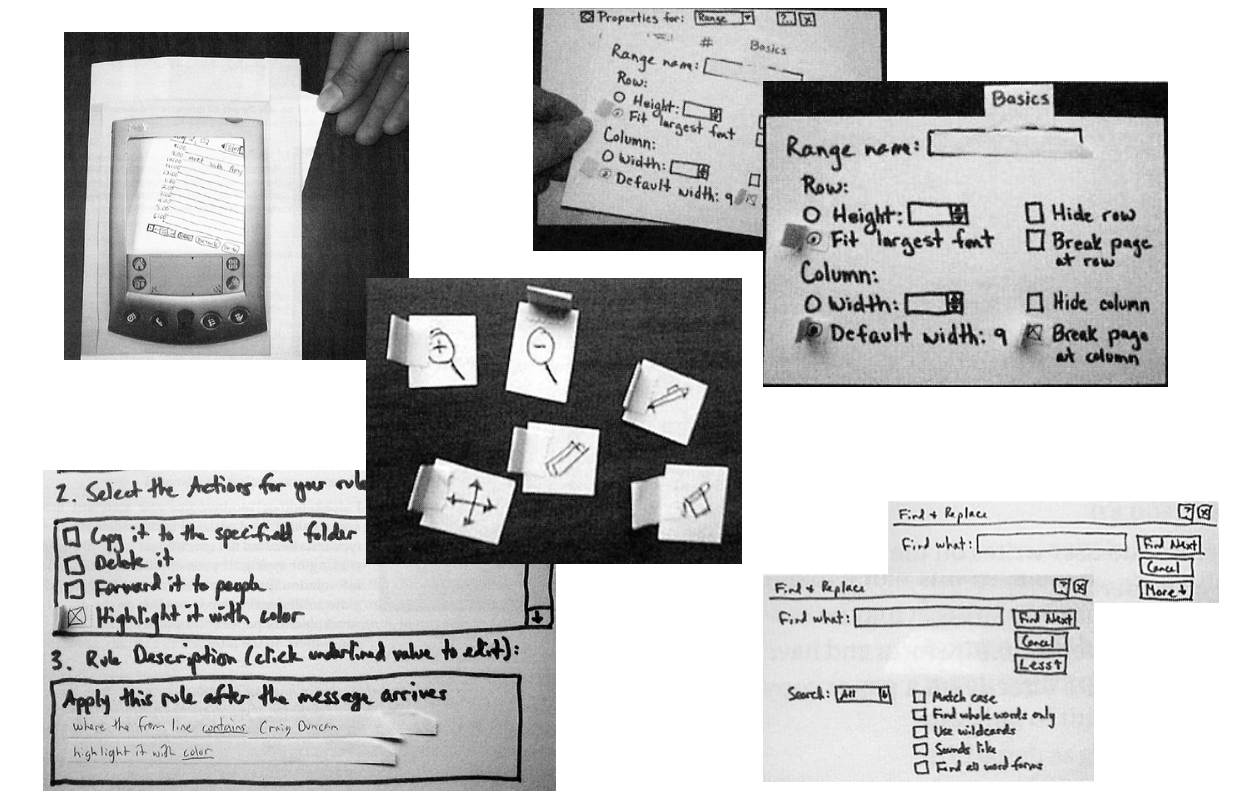 meet with Amy
Properties for: Range ?.. X
# Basics
Range name:
Row:
Height:
Fit largest font
Column:
Width:
Default width: 9
Basics
Range name:
Row:
Height:
Hide row
Fit largest font
Break page
at row
Column:
Width:
Hide column
Default width: 9
Break page
at column
+
-
2. Select the Actions for your rule
Copy it to the specified folder
Delete it
Forward it to people
Highlight it with color
3. Rule Description (click underlined value to edit):
Apply this rule after the message arrives
where the from line contains Craig Duncan
highlight it with color
Find & Replace ? X
Find what: Find Next
Cancel
More↓
Find & Replace ? X
Find what: Find Next
Cancel
Less↑
Search: All
Match case
Find whole words only
Use wildcards
Sounds like
Find all word forms